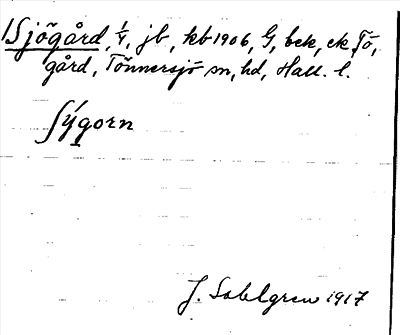 Sjögård, 1/4, jb, kb 1906, G, bek, ek, Sö,
gård, Tönnersjö sn, hd, Hall. l.
Sýgorn
J. Sahlgren 1917